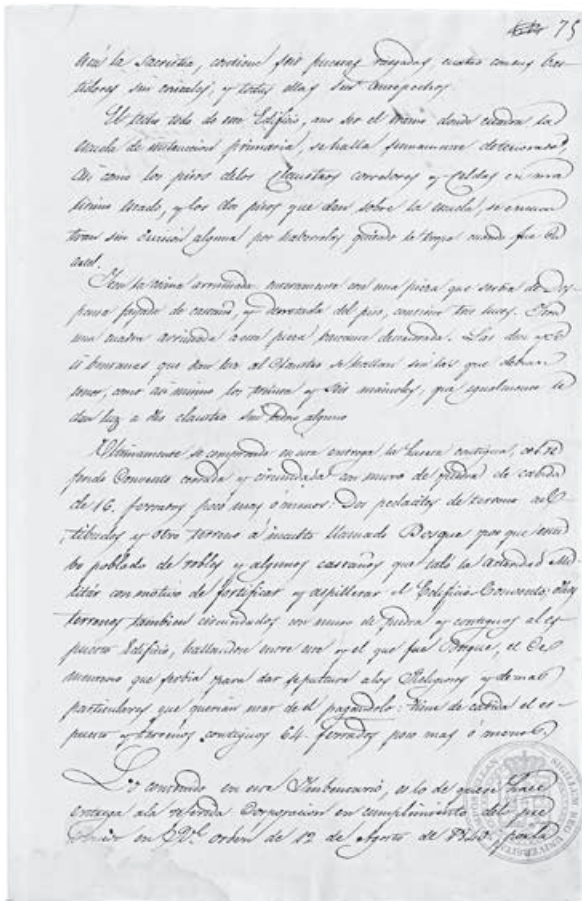 75
acá la Sacristia, contiene seis puertas rasgadas, cuatro con sus bas-
tidores sin cristales, y todas ellas sin antepechos.
El techo todo de este Edificio, aun ser el tramo donde cuadra la
escuela de instruccion primaria, se halla sumamente deteriorado,
Asi como los pisos de los Claustros corredores y Celdas en ma-
lisimo estado, y los dos pisos que dan sobre la escuela, se encuen-
tran sin division alguna por haberlas quitado la tropa cuando fue Cu-
artel.
Iten la cocina arruinada enteramente con una pieza que serbia de Des-
pensa fayado de castaño, y derrotada del piso, contiene tres luces. Iten
una cuadra arruinada a esta pieza bastante deteriorada. Las diez y
ventanas que dan luz al Claustro se hallan sin las que deban
tener, como asi mismo las treinta y seis que igualmente
dan luz a dho claustro sin vidrio alguno
Ultimamente se comprende en esta entrega la huerta contigua, al re-
ferido Convento cerrada y circundada con muro de piedra de cabida
de 16, ferrados poco mas ó menos: Dos pedacitos de terreno
y otro terreno á inculto llamado Bosque por que estu-
bo poblado de robles y algunos castaños que taló la Autoridad Mi-
litar con motivo de fortificar y aspillerar el Edificio Convento, cuyos
terrenos tambien circundados con muro de piedra y contiguos al es-
puesto Edificio, hallandose entre este y el que fue Bosque, el Ce-
menterio que serbia para dar sepultura a los Religiosos y demas
particulares que querian usar de el pagandolo: tiene de cabida el es-
puesto y terrenos contiguos 64 ferrados poco mas ó menos.
Lo contenido en este Imbentario, es lo de que se hace
entrega a la referida Corporacion en cumplimiento del pre-
en Rl. orden de 12 de Agosto de 1840, por la